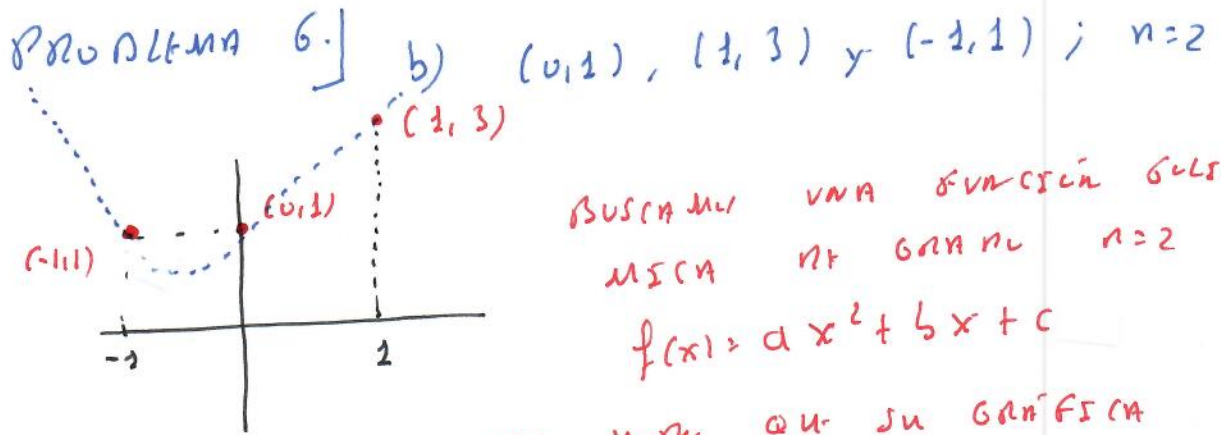 PROBLEMA 6.] b) (0,1), (1,3) y (-1,1) ; n=2
(1,3)
(0,1)
(-1,1)
-1
1
BUSCAMOS UNA FUNCIÓN POLI
MICA DE GRADO n=2
f(x)= ax²+bx+c
QUE SU GRÁFICA